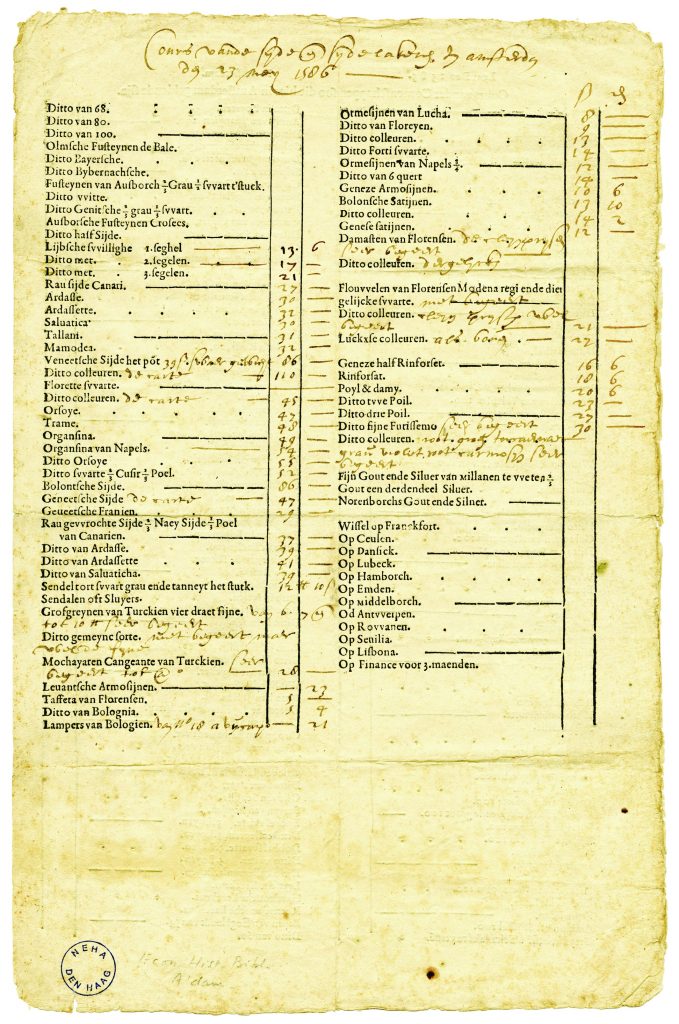 Cours vande sijde en sijdelakenen In amsterdam
den 23 mey 1586
Ditto van 68.
Ditto van 80.
Ditto van 100.
Olmsche Fusteynen de Bale.
Ditto Bayersche.
Ditto Bybernachsche.
Fusteynen van Ausborch ⅔ Grau ⅓ svvart t'stuck.
Ditto vvitte.
Ditto Genitsche ⅔ grau ⅓ svvart.
Ausborsche Fusteynen Crosees.
Ditto half Sijde.
Lijbsche svvillighe 1. seghel 13. 6
Ditto met. 2. segelen. 17
Ditto met. 3. segelen. 21
Rau sijde Canari. 27
Ardasse. 30
Ardassette. 32
Saluatica 30
Tallani. 31
Mamodea. 32
Veneetsche Sijde het pōt 86
Ditto colleuren. de carte 110
Florette svvarte.
Ditto colleuren. de carte 45
Orsoye. 47
Trame. 48
Organsina. 49
Organsina van Napels. 54
Ditto Orsoye 55
Ditto svvarte ⅔ Cusir ⅓ Poel. 52
Bolontsche Sijde. 86
Geneetsche Sijde de carte 47
Geueetsche Franien. 29
Rau gevvrochte Sijde ⅔ Naey Sijde ⅓ Poel
van Canarien. 37
Ditto van Ardasse. 39
Ditto van Ardassette 41
Ditto van Saluaticha. 39
Sendel tort svvart grau ende tanneyt het stuck. 12 10
Sendalen oft Sluyers.
Grofgreynen van Turckien vier draet fijne. van 6. 7
tot 10 seer begeert
Ditto gemeyne sorte. niet begeert mar
Mochayaren Cangeante van Turckien. seer
begeert tot 28
Leuantsche Armosijnen. 23
Taffeta van Florensen. 5
Ditto van Bolognia. 5 4
Lampers van Bologien. 18 21
ß ₰
Ormesijnen van Lucha. 8
Ditto van Floreyen. 9
Ditto colleuren. 13
Ditto Forti svvarte. 14
Ormesijnen van Napels ¾. 12
Ditto van 6 quert 14
Geneze Armosijnen. 10 6
Bolonsche Satijnen. 13 10
Ditto colleuren. 14 2
Genese satijnen. 12
Damasten van Florensen.
seer begeert
Ditto colleuren. dergelijck
Flouvvelen van Florensen Modena regi ende dier
gelijcke svvarte. niet begeert
Ditto colleuren.
begeert 21
Luckxse colleuren. als boven. 22
Geneze half Rinforset. 16 6
Rinforsat. 18 6
Poyl & damy. 20 6
Ditto tvve Poil. 23
Ditto drie Poil. 27
Ditto fijne Furissemo seer begeert 30
Ditto colleuren.
grau violet
begeert
Fijn Gout ende Siluer van Millanen te vveten ⅔
Gout een derdendeel Siluer.
Norenborchs Gout ende Silner.
Wissel op Franckfort.
Op Ceulen.
Op Dansick.
Op Lubeck.
Op Hamborch.
Op Emden.
Op Middelborch.
Od Antvverpen.
Op Rovvanen.
Op Seuilia.
Op Lisbona.
Op Finance voor 3. maenden.
NEHA
DEN HAAG
Econ. Hist. Bibl.
A'dam